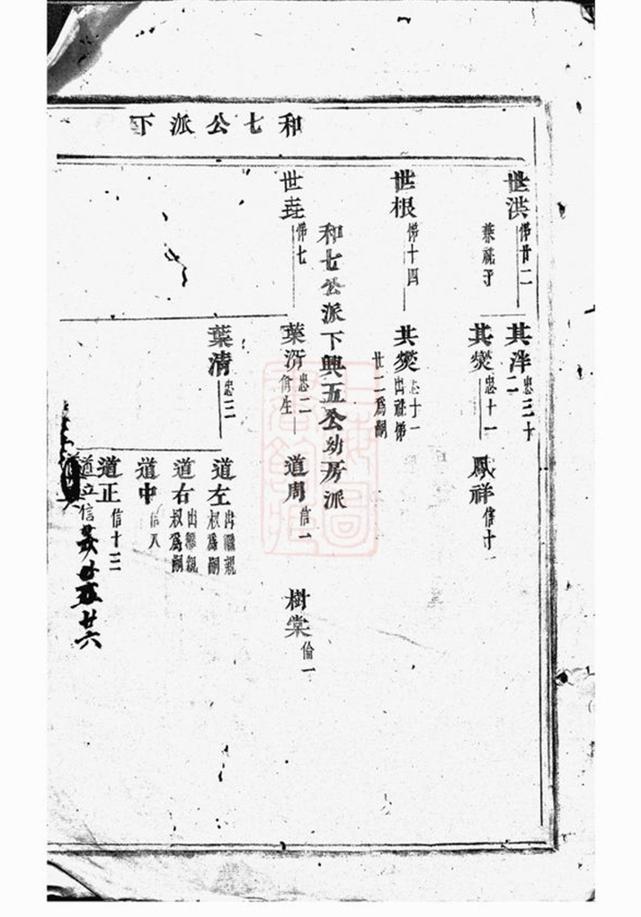 和七公派下
世洪 俤廿二
兼祧子
其泮 忠三十二
其熒 忠十一
鳳祥 信廿
世根 俤十四
其熒 忠十一
出祧俤廿二爲嗣
和七公派下興五公幼房派
世垚 俤七
葉 忠二
道周 信一
樹棠 倫一
葉清 忠三
道左
出繼親叔爲嗣
道右
出繼親叔爲嗣
道中 信八
道正 信十三
道立 信
廿六